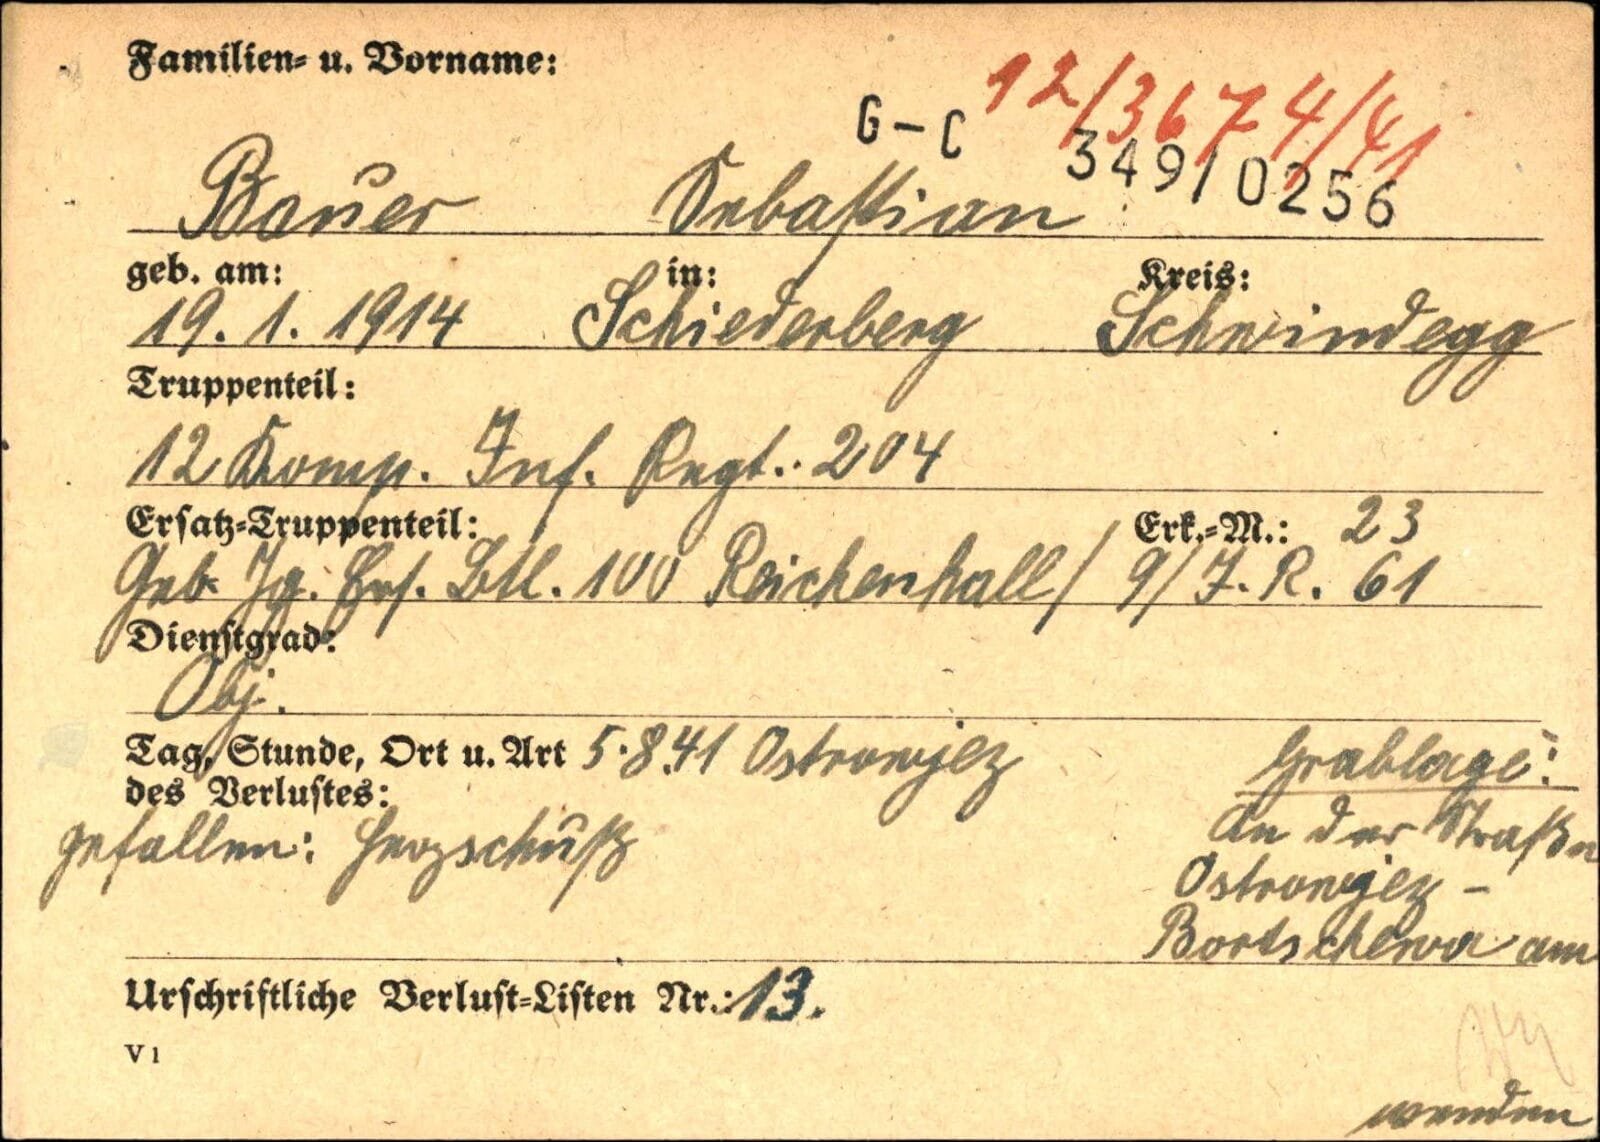 Familien- u. Vorname:
12/3674/41
G-C 349/0256
Bauer Sebastian
geb. am: in: Kreis:
19. 1. 1914 Schiederberg Schwindegg
Truppenteil:
12 Komp. Inf. Regt. 204
Ersatz-Truppenteil: Erk.-M.: 23
Geb. Jg. Ers. Btl. 100 Reichenhall / 9/I.R. 61
Dienstgrad:
Obj.
Tag, Stunde, Ort u. Art 5.8.41 Ostrowjez
des Verlustes:
gefallen: Herzschuß
Grablage:
An der Straße
Ostrowjez -
Bortschewa am
Urschriftliche Verlust-Listen Nr.: 13.
V 1
wenden